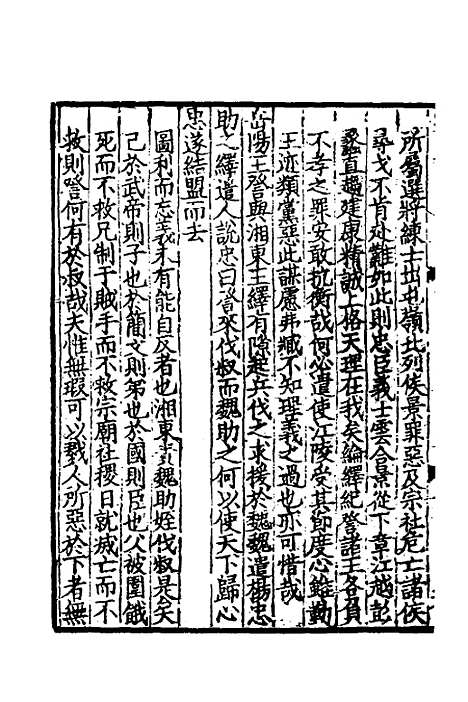 所屬選將練士出屯嶺北列侯景罪惡及宗社危亡諸侯
尋戈不肯赴難如此則忠臣義士雲合景從下章江越彭
蠡直趨建康精誠上格天理在我矣綸繹紀詧諸王各負
不孝之罪安敢抗衡哉何必遣使江陵受其節度心雖勤
王亦類黨惡此謀慮弗臧不知理義之過也亦可惜哉
岳陽王詧與湘東王繹有隙起兵伐之求援於魏魏遣楊忠
助之繹遣人說忠曰詧來伐叔而魏助之何以使天下歸心
忠遂結盟而去
圖利而忘義未有能自反者也湘東責魏助姪伐叔是矣
己於武帝則子也於簡文則弟也於國則臣也父被圍餓
死而不救兄制于賊手而不救宗廟社稷日就威亡而不
救則詧何有於叔哉夫惟無瑕可以戮人所惡於下者無